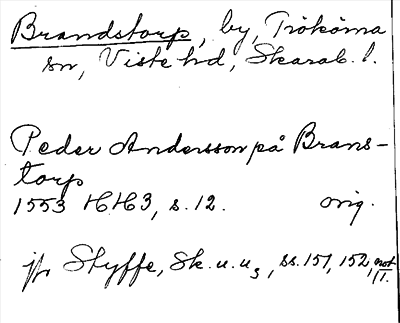 Brandstorp, by, Trökörna
sn, Viste hd, Skarab. l.
Peder Andersson på Brans-
torp
1553 HH3, s. 12. orig.
jfr Styffe, Sk. u. u3, ss. 151, 152, not
1.